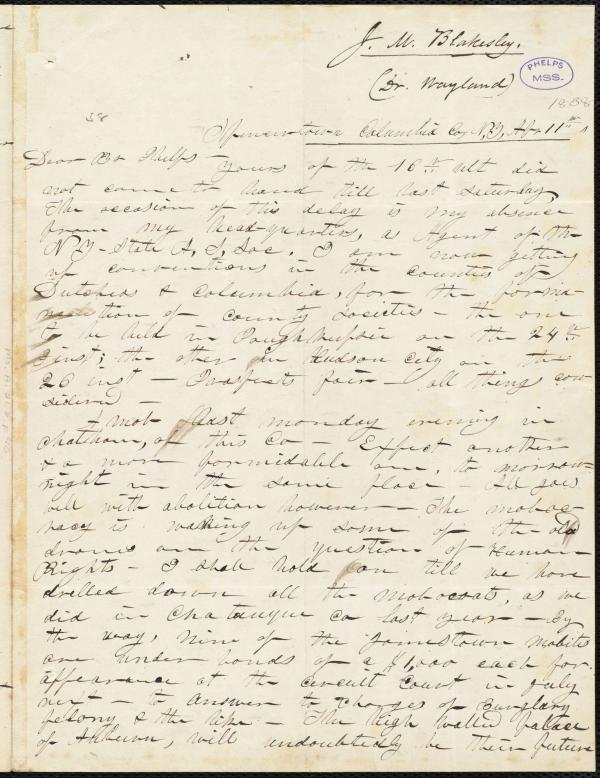 J. M. Blakesley.
(Dr. Wayland)
PHELPS
MSS.
1838
38
Spencertown Columbia Co, N.Y, Apr 11th
Dear Br Phelps - Yours of the 16th ult did
not come to hand till last Saturday,
The occasion of this delay is my absence
from my head-quarters, as Agent of the
N Y - State A, S, Soc. I am now getting
up conventions in the counties of
Dutchess & Columbia, for the forma-
tion of county societies - the one
to be held in Poughkeepsie on the 24th
inst; the other in Hudson city on the
26 inst - Prospects fair - all things con
sidered -
A mob last monday evening in
Chatham, of this Co - Expect another
& a more formidable one, to morrow
night in the same place - All goes
well with abolition however - The moboc-
racy is waking up some of the old
drones on the question of Human
Rights - I shall hold on till we have
drilled down all the mobocrats, as we
did in Chatauque Co last year - By
the way, nine of the Jamestown mobites
are under bonds of a $1,000 each for
appearance at the circuit court in July
next - to answer to charges of Burglary
felony & the like - The high walled palace
of Auburn, will undoubtedly be their future